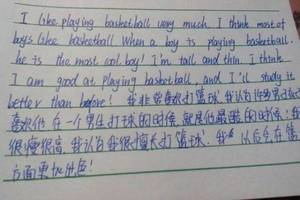 I like playing basketball very much. I think most of
boys like basketball. When a boy is playing basketball.
he is the most cool boy! I'm tall and thin. I think
I am good at playing basketball, and I'll study it
better than before! 我非常喜欢打篮球。我认为大多数男孩
喜欢他 在一个男生打球的时候 就是他最酷的时候!我
很瘦很高。我认为我很擅长打篮球。我 以后会在篮
方面更加出色!